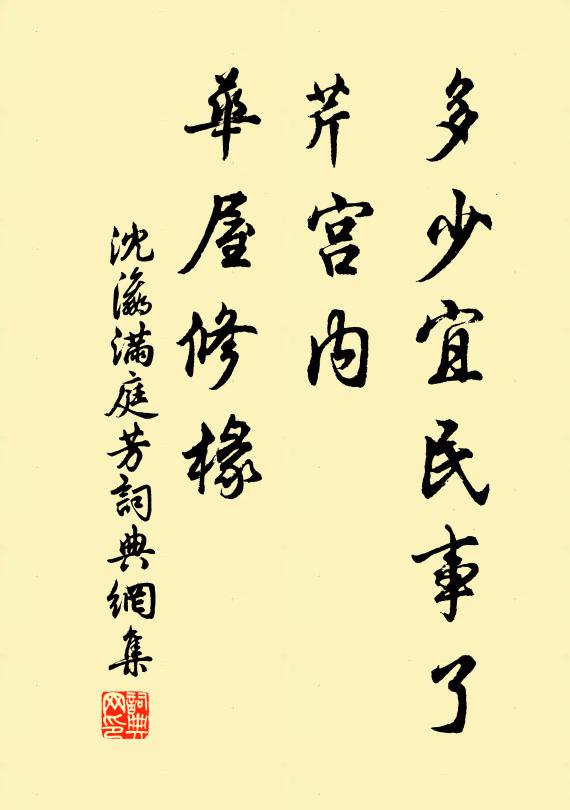 多少宜民事了
芹宫内
華屋修椽
沈瀛满庭芳詞典網集
詞典网印